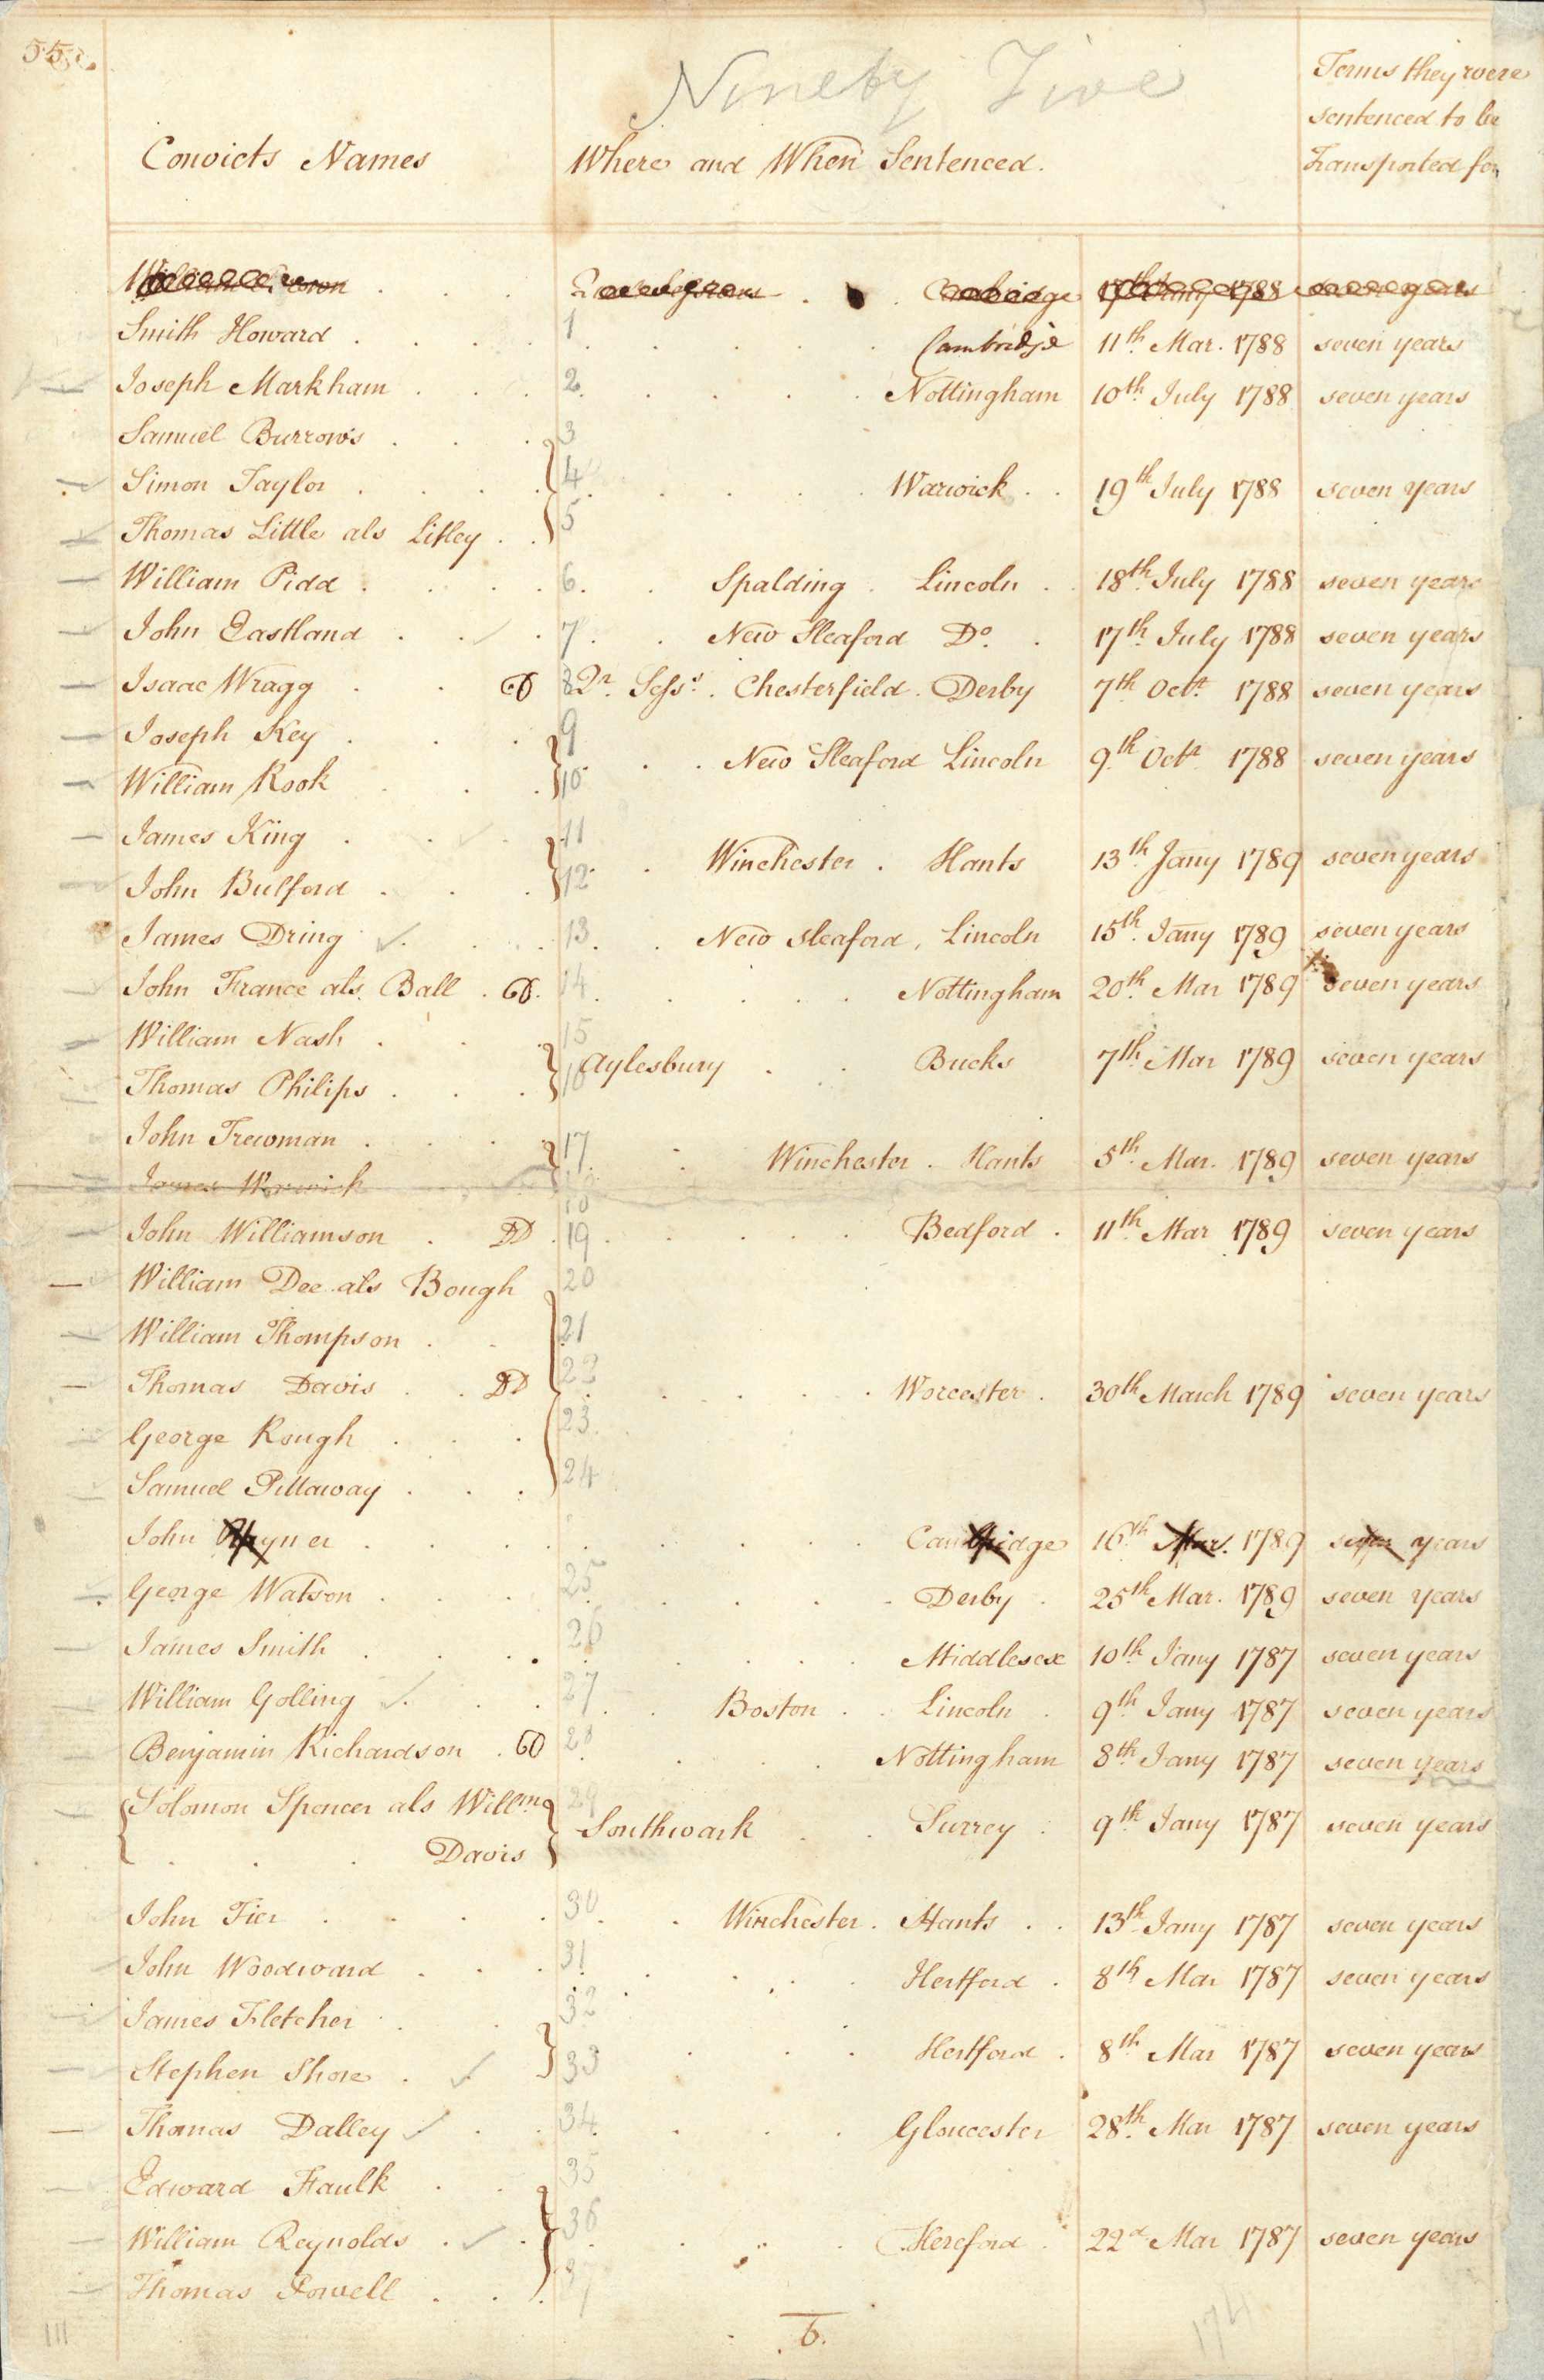 Ninety Five
Convicts Names
Where and When Sentenced.
Terms they were
sentenced to be
Transported for
Smith Howard . . . . 1 . . . . . Cambridge 11th Mar. 1788 seven years
Joseph Markham . . . 2 . . . . . Nottingham 10th July 1788 seven years
Samuel Burrows . . . 3
Simon Taylor . . . . 4 . . . . . Warwick . . 19th July 1788 seven years
Thomas Little als Litley . . 5
William Pidd . . . . 6 . . Spalding . Lincoln . . 18th July 1788 seven years
John Eastland . . . 7 . . New Sleaford Do. . 17th July 1788 seven years
Isaac Wragg . . 8 Qr. Sesss. Chesterfield . Derby 7th Octr. 1788 seven years
Joseph Key . . . 9
William Rook . . . 10 . . New Sleaford Lincoln 9th Octr 1788 seven years
James King . . . 11
John Bulford . . . 12 . . Winchester . Hants 13th Jany 1789 seven years
James Dring . . . . 13 . . New Sleaford, Lincoln 15th Jany 1789 seven years
John France als. Ball . 14 . . . . . Nottingham 20th Mar 1789 seven years
William Nash . . . 15
Thomas Philips . . . 16 Aylesbury . . Bucks 7th Mar 1789 seven years
John Trewman . . . 17 . . Winchester . Hants 5th Mar. 1789 seven years
James Warwick 18
John Williamson . DD . 19 . . . . . Bedford . 11th Mar 1789 seven years
William Dee als Bough 20
William Thompson . . 21
Thomas Davis . . DD 22 . . . . . Worcester . 30th March 1789 seven years
George Rough . . . 23
Samuel Pittaway . . . 24
John Rayner . . . . . . . . . Cambridge 16th Mar. 1789 seven years
George Watson . . . . 25 . . . . . Derby . 25th Mar. 1789 seven years
James Smith . . . . 26 . . . . . Middlesex 10th Jany 1787 seven years
William Golling . . . 27 . . Boston . . Lincoln . 9th Jany 1787 seven years
Benjamin Richardson . 28 . . . . Nottingham 8th Jany 1787 seven years
Solomon Spencer als Willm 29
. . . Davis Southwark . . Surrey . 9th Jany 1787 seven years
John Tier . . . . 30 . . Winchester . Hants . . 13th Jany 1787 seven years
John Woodward . . . 31 . . . . . Hertford . 8th Mar 1787 seven years
James Fletcher . . 32
Stephen Shore . 33 . . . Hertford . 8th Mar 1787 seven years
Thomas Dalley . . 34 . . . . Gloucester 28th Mar 1787 seven years
Edward Faulk . . 35
William Reynolds . . 36 . . . . Hereford . 22d Mar 1787 seven years
Thomas Powell . . . 37
6.